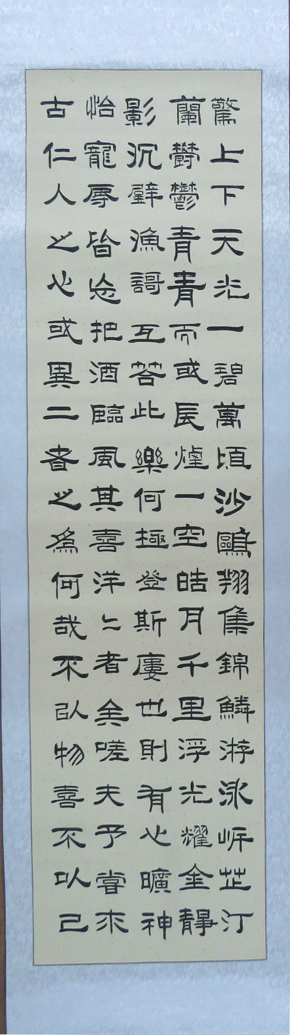 驚上下天光一碧萬頃沙鷗翔集錦鱗游泳岸芷汀
蘭鬱鬱青青而或長煙一空皓月千里浮光耀金靜
影沉璧漁謌互答此樂何極登斯樓也則有心曠神
怡寵辱皆忘把酒臨風其喜洋〻者矣嗟夫予嘗求
古仁人之心或異二者之為何哉不以物喜不以己